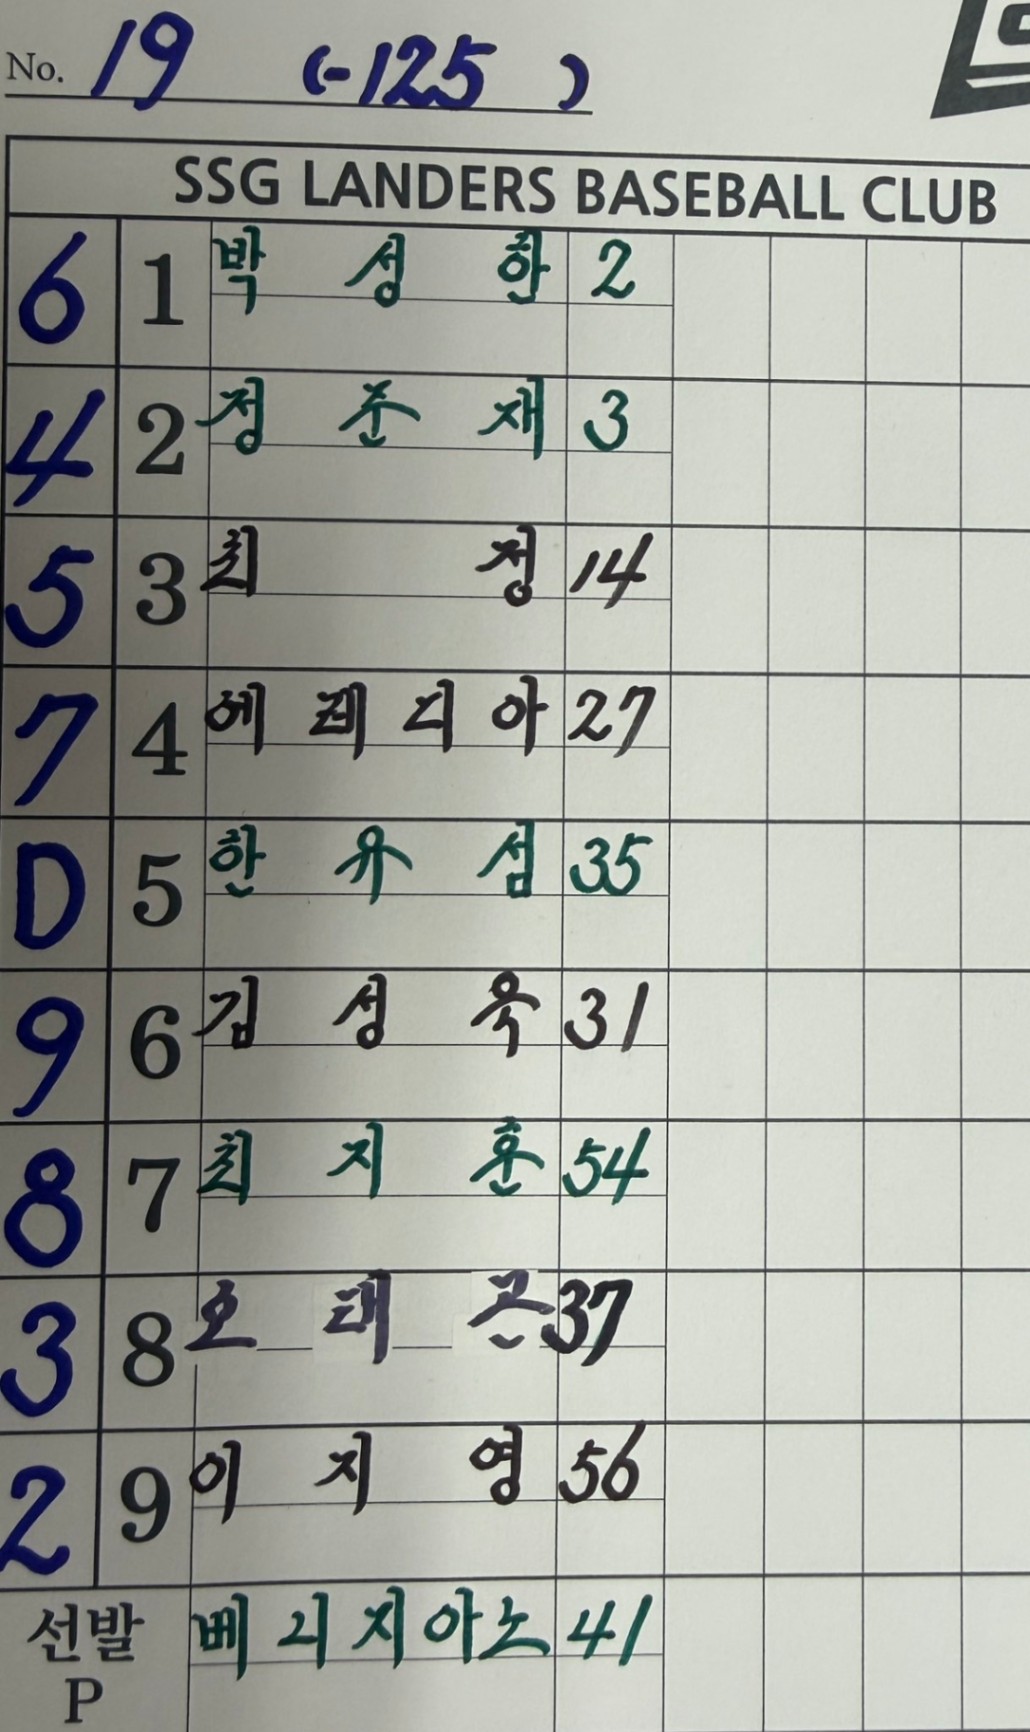 No. 19 (-125)
SSG LANDERS BASEBALL CLUB
6 1 박성한 2
4 2 정준재 3
5 3 최정 14
7 4 에레디아 27
D 5 한유섬 35
9 6 김성욱 31
8 7 최지훈 54
3 8 오태곤 37
2 9 이지영 56
선발 베니지아노 41
P